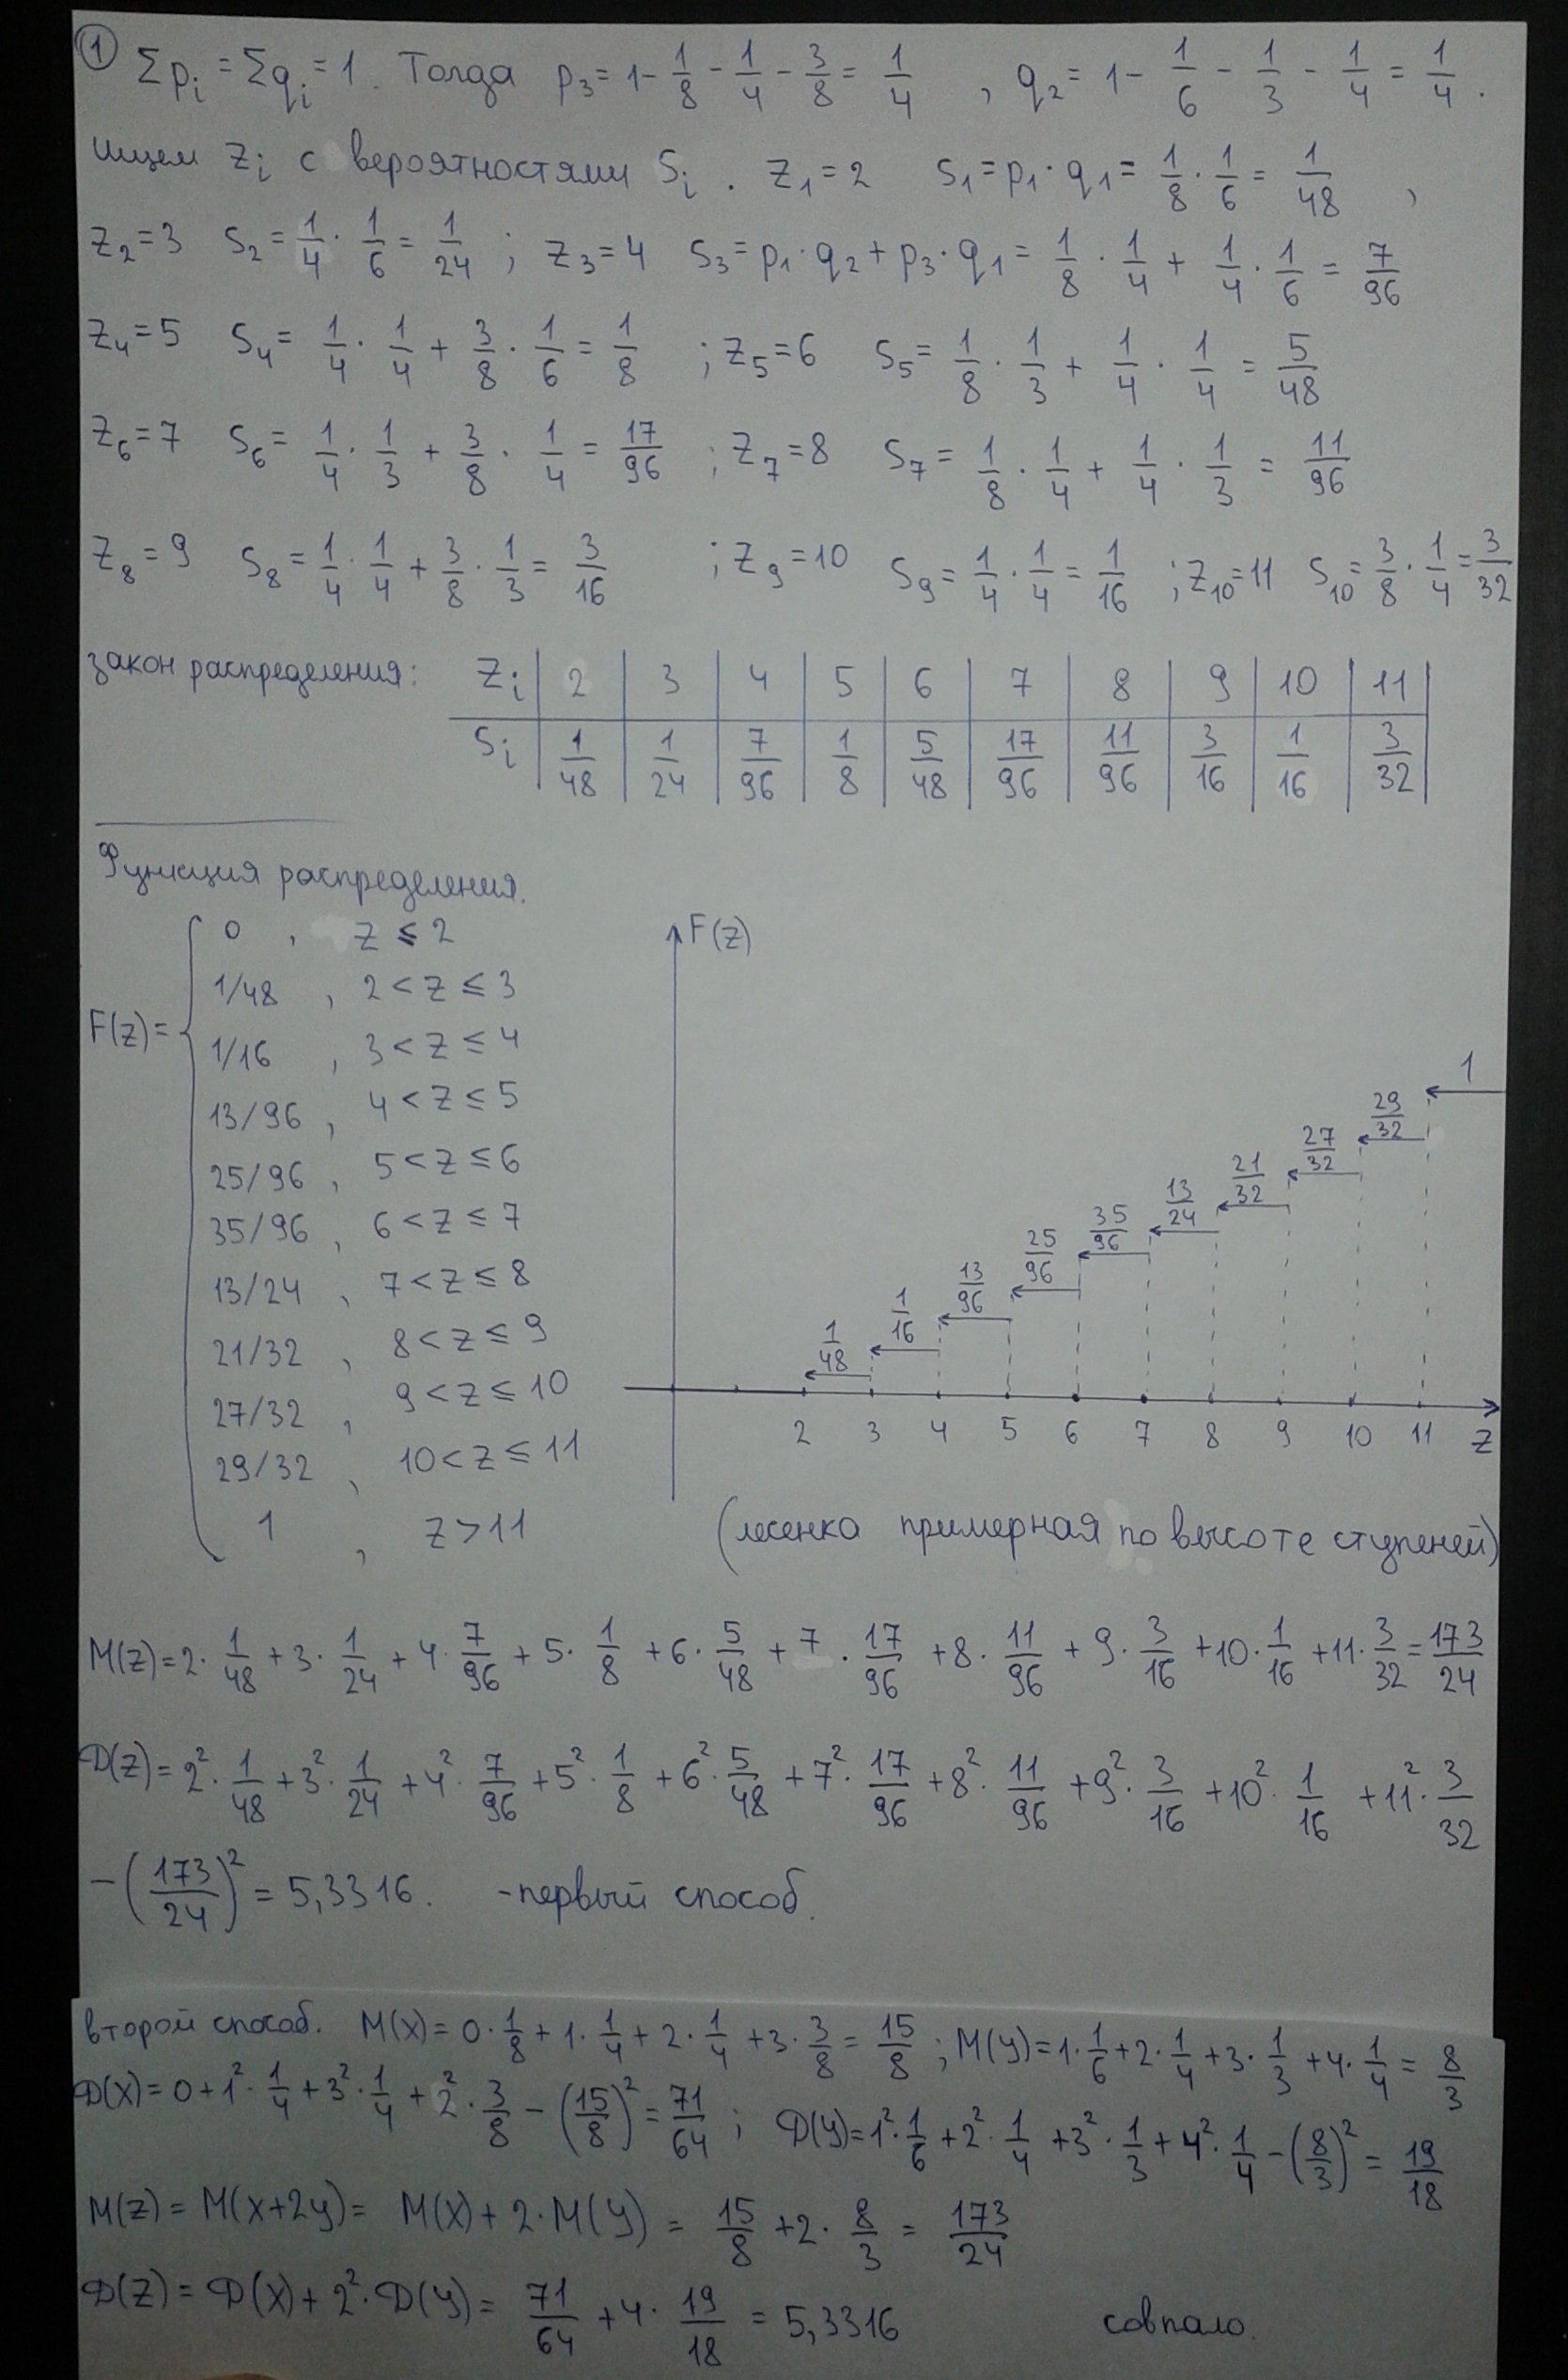 ① Σpᵢ = Σqᵢ = 1. Тогда p₃ = 1 - 1/8 - 1/4 - 3/8 = 1/4 , q₂ = 1 - 1/6 - 1/3 - 1/4 = 1/4 .
Ищем Zᵢ с вероятностями Sᵢ . Z₁=2 S₁ = p₁·q₁ = 1/8 · 1/6 = 1/48 ,
Z₂=3 S₂ = 1/4 · 1/6 = 1/24 ; Z₃=4 S₃ = p₁·q₂ + p₃·q₁ = 1/8 · 1/4 + 1/4 · 1/6 = 7/96
Z₄=5 S₄ = 1/4 · 1/4 + 3/8 · 1/6 = 1/8 ; Z₅=6 S₅ = 1/8 · 1/3 + 1/4 · 1/4 = 5/48
Z₆=7 S₆ = 1/4 · 1/3 + 3/8 · 1/4 = 17/96 ; Z₇=8 S₇ = 1/8 · 1/4 + 1/4 · 1/3 = 11/96
Z₈=9 S₈ = 1/4 · 1/4 + 3/8 · 1/3 = 3/16 ; Z₉=10 S₉ = 1/4 · 1/4 = 1/16 ; Z₁₀=11 S₁₀ = 3/8 · 1/4 = 3/32
закон распределения: Zᵢ 2 3 4 5 6 7 8 9 10 11
Sᵢ 1/48 1/24 7/96 1/8 5/48 17/96 11/96 3/16 1/16 3/32
Функция распределения.
F(z) =
0 , z ≤ 2
1/48 , 2 < z ≤ 3
1/16 , 3 < z ≤ 4
13/96 , 4 < z ≤ 5
25/96 , 5 < z ≤ 6
35/96 , 6 < z ≤ 7
13/24 , 7 < z ≤ 8
21/32 , 8 < z ≤ 9
27/32 , 9 < z ≤ 10
29/32 , 10 < z ≤ 11
1 , z > 11
F(z)
1/48 1/16 13/96 25/96 35/96 13/24 21/32 27/32 29/32 1
2 3 4 5 6 7 8 9 10 11 z
(лесенка примерная по высоте ступеней)
M(z) = 2· 1/48 + 3· 1/24 + 4· 7/96 + 5· 1/8 + 6· 5/48 + 7· 17/96 + 8· 11/96 + 9· 3/16 + 10· 1/16 + 11· 3/32 = 173/24
D(z) = 2²· 1/48 + 3²· 1/24 + 4²· 7/96 + 5²· 1/8 + 6²· 5/48 + 7²· 17/96 + 8²· 11/96 + 9²· 3/16 + 10²· 1/16 + 11²· 3/32
- (173/24)² = 5,3316. - первый способ.
второй способ. M(x) = 0· 1/8 + 1· 1/4 + 2· 1/4 + 3· 3/8 = 15/8 ; M(y) = 1· 1/6 + 2· 1/4 + 3· 1/3 + 4· 1/4 = 8/3
D(x) = 0 + 1²· 1/4 + 3²· 1/4 + 2²· 3/8 - (15/8)² = 71/64 ; D(y) = 1²· 1/6 + 2²· 1/4 + 3²· 1/3 + 4²· 1/4 - (8/3)² = 19/18
M(z) = M(x+2y) = M(x) + 2·M(y) = 15/8 + 2· 8/3 = 173/24
D(z) = D(x) + 2²·D(y) = 71/64 + 4· 19/18 = 5,3316 совпало.